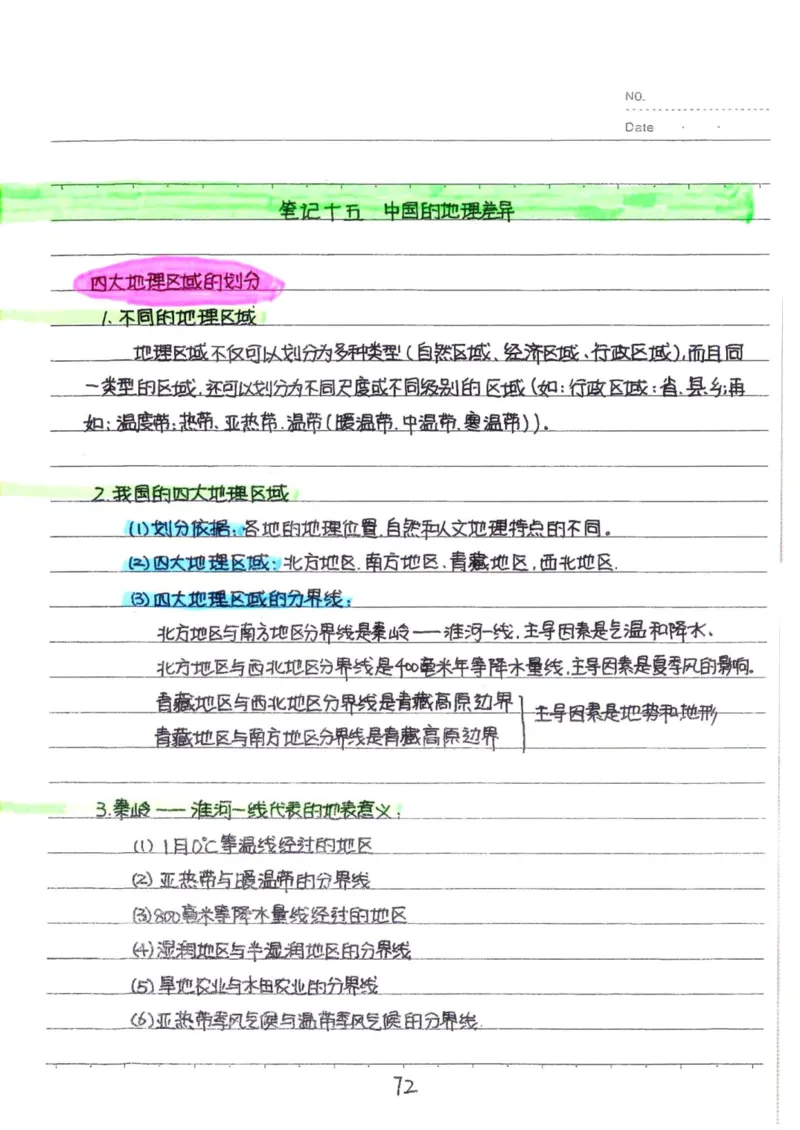 NO.
Date
笔记十五 中国的地理差异
四大地理区域的划分
1.不同的地理区域
地理区域不仅可以划分为多种类型(自然区域、经济区域、行政区域),而且同
一类型的区域,还可以划分为不同尺度或不同级别的区域(如:行政区域:省、县、乡;再
如:温度带:热带、亚热带、温带(暖温带、中温带、寒温带))。
2.我国的四大地理区域
(1)划分依据:各地的地理位置、自然和人文地理特点的不同。
(2)四大地理区域:北方地区、南方地区、青藏地区,西北地区.
(3)四大地理区域的分界线:
北方地区与南方地区分界线是秦岭——淮河一线,主导因素是气温和降水、
北方地区与西北地区分界线是400毫米年等降水量线,主导因素是夏季风的影响。
青藏地区与西北地区分界线是青藏高原边界
青藏地区与南方地区分界线是青藏高原边界
主导因素是地势和地形
3.秦岭——淮河一线代表的地表意义:
(1)1月0℃等温线经过的地区
(2)亚热带与暖温带的分界线
(3)800毫米等降水量线经过的地区
(4)湿润地区与半湿润地区的分界线
(5)旱地农业与水田农业的分界线
(6)亚热带季风气候与温带季风气候的分界线.
72